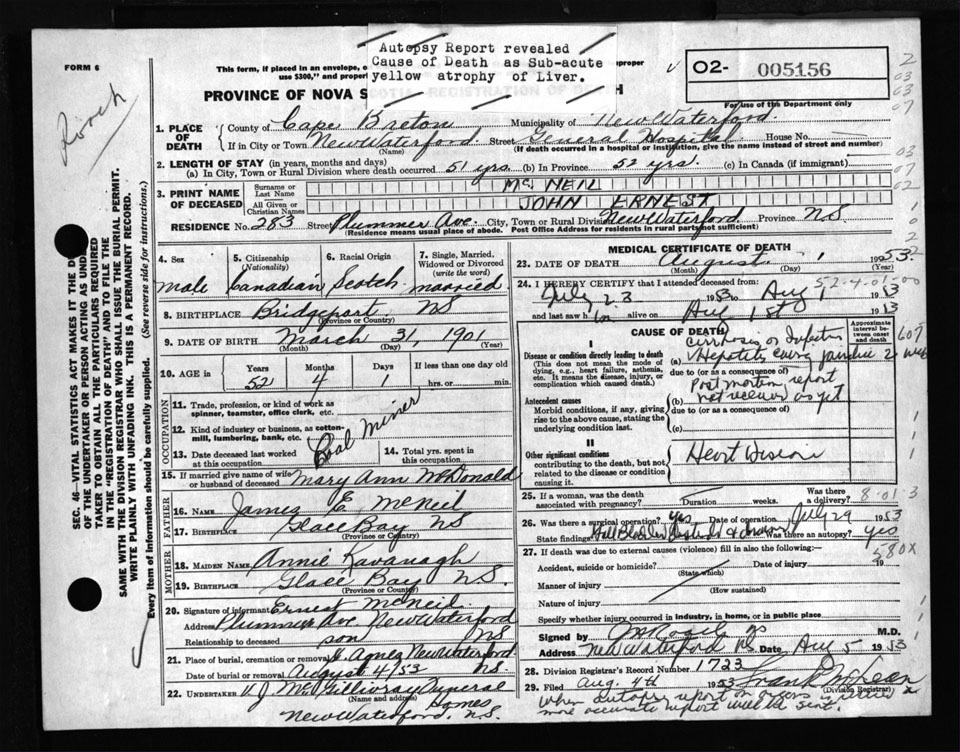 FORM 6
This form, if placed in an envelope, o
use $300," and proper
roper
Autopsy Report revealed
Cause of Death as Sub-acute
yellow atrophy of Liver.
O2- 005156
For use of the Department only
PROVINCE OF NOVA S
H
1. PLACE OF DEATH
County of Cape Breton Municipality of New Waterford
If in City or Town New Waterford Street General Hospital House No.
(Name) (If death occurred in a hospital or institution, give the name instead of street and number)
2. LENGTH OF STAY (in years, months and days)
(a) In City, Town or Rural Division where death occurred 51 yrs. (b) In Province 52 yrs. (c) In Canada (if immigrant)
3. PRINT NAME OF DECEASED
Surname or Last Name MC NEIL
All Given or Christian Names JOHN ERNEST
RESIDENCE No. 283 Street Plummer Ave. City, Town or Rural Division New Waterford Province NS
(Residence means usual place of abode. Post Office Address for residents in rural parts not sufficient)
SEC. 46—VITAL STATISTICS ACT MAKES IT THE D
OF THE UNDERTAKER OR PERSON ACTING AS UND
TAKER TO OBTAIN ALL THE PARTICULARS REQUIRED
IN THE "REGISTRATION OF DEATH" AND TO FILE THE
SAME WITH THE DIVISION REGISTRAR WHO SHALL ISSUE THE BURIAL PERMIT.
WRITE PLAINLY WITH UNFADING INK. THIS IS A PERMANENT RECORD.
Every item of information should be carefully supplied. (See reverse side for instructions.)
4. Sex
male
5. Citizenship
(Nationality)
Canadian
6. Racial Origin
Scotch
7. Single, Married, Widowed or Divorced
(write the word)
married
8. BIRTHPLACE Bridgeport NS
(Province or Country)
9. DATE OF BIRTH March 31, 1901
(Month) (Day) (Year)
10. AGE in
Years Months Days If less than one day old
52 4 1 hrs. or min.
OCCUPATION
11. Trade, profession, or kind of work as
spinner, teamster, office clerk, etc.
12. Kind of industry or business, as cotton-
mill, lumbering, bank, etc.
Coal miner
13. Date deceased last worked
at this occupation
14. Total yrs. spent in
this occupation
15. If married give name of wife
or husband of deceased Mary Ann McDonald
FATHER
16. NAME James E. McNeil
17. BIRTHPLACE Glace Bay NS
(Province or Country)
MOTHER
18. MAIDEN NAME Annie Kavanagh
19. BIRTHPLACE Glace Bay N.S.
(Province or Country)
20. Signature of informant Ernest McNeil
Address Plummer Ave. New Waterford
Relationship to deceased son NS
21. Place of burial, cremation or removal St. Agnes New Waterford
Date of burial or removal August 4/53 NS.
22. UNDERTAKER V J McGillivray Funeral
(Name and address) Homes
New Waterford, N.S.
MEDICAL CERTIFICATE OF DEATH
23. DATE OF DEATH August 1 1953
(Month) (Day) (Year)
24. I HEREBY CERTIFY that I attended deceased from:
July 23 1953 to Aug 1 1953
and last saw him alive on Aug 1st 1953
CAUSE OF DEATH
Approximate interval between onset and death
I
Disease or condition directly leading to death
(This does not mean the mode of
dying, e.g., heart failure, asthenia,
etc. It means the disease, injury, or
complication which caused death.)
(a) cirrhosis or Infectious
Hepatitis causing jaundice 2 wks
due to (or as a consequence of)
Antecedent causes
Morbid conditions, if any, giving
rise to the above cause, stating the
underlying condition last.
(b) Post mortem report
not received as yet
due to (or as a consequence of)
(c)
II
Other significant conditions
contributing to the death, but not
related to the disease or condition
causing it.
Heart Disease
25. If a woman, was the death
associated with pregnancy? Duration weeks. Was there delivery?
26. Was there surgical operation? yes Date of operation July 29 1953
State findings Gall Bladder Was there an autopsy? yes
27. If death was due to external causes (violence) fill in also the following:—
Accident, suicide or homicide? Date of injury 19
(State which)
Manner of injury
(How sustained)
Nature of injury
Specify whether injury occurred in industry, in home, or in public place
Signed by M.D.
Address New Waterford NS Date Aug 5 1953
28. Division Registrar's Record Number 1723
29. Filed Aug. 4th 1953 Frank McLean
(Division Registrar)
When autopsy report on organs is
more accurate report will be sent.